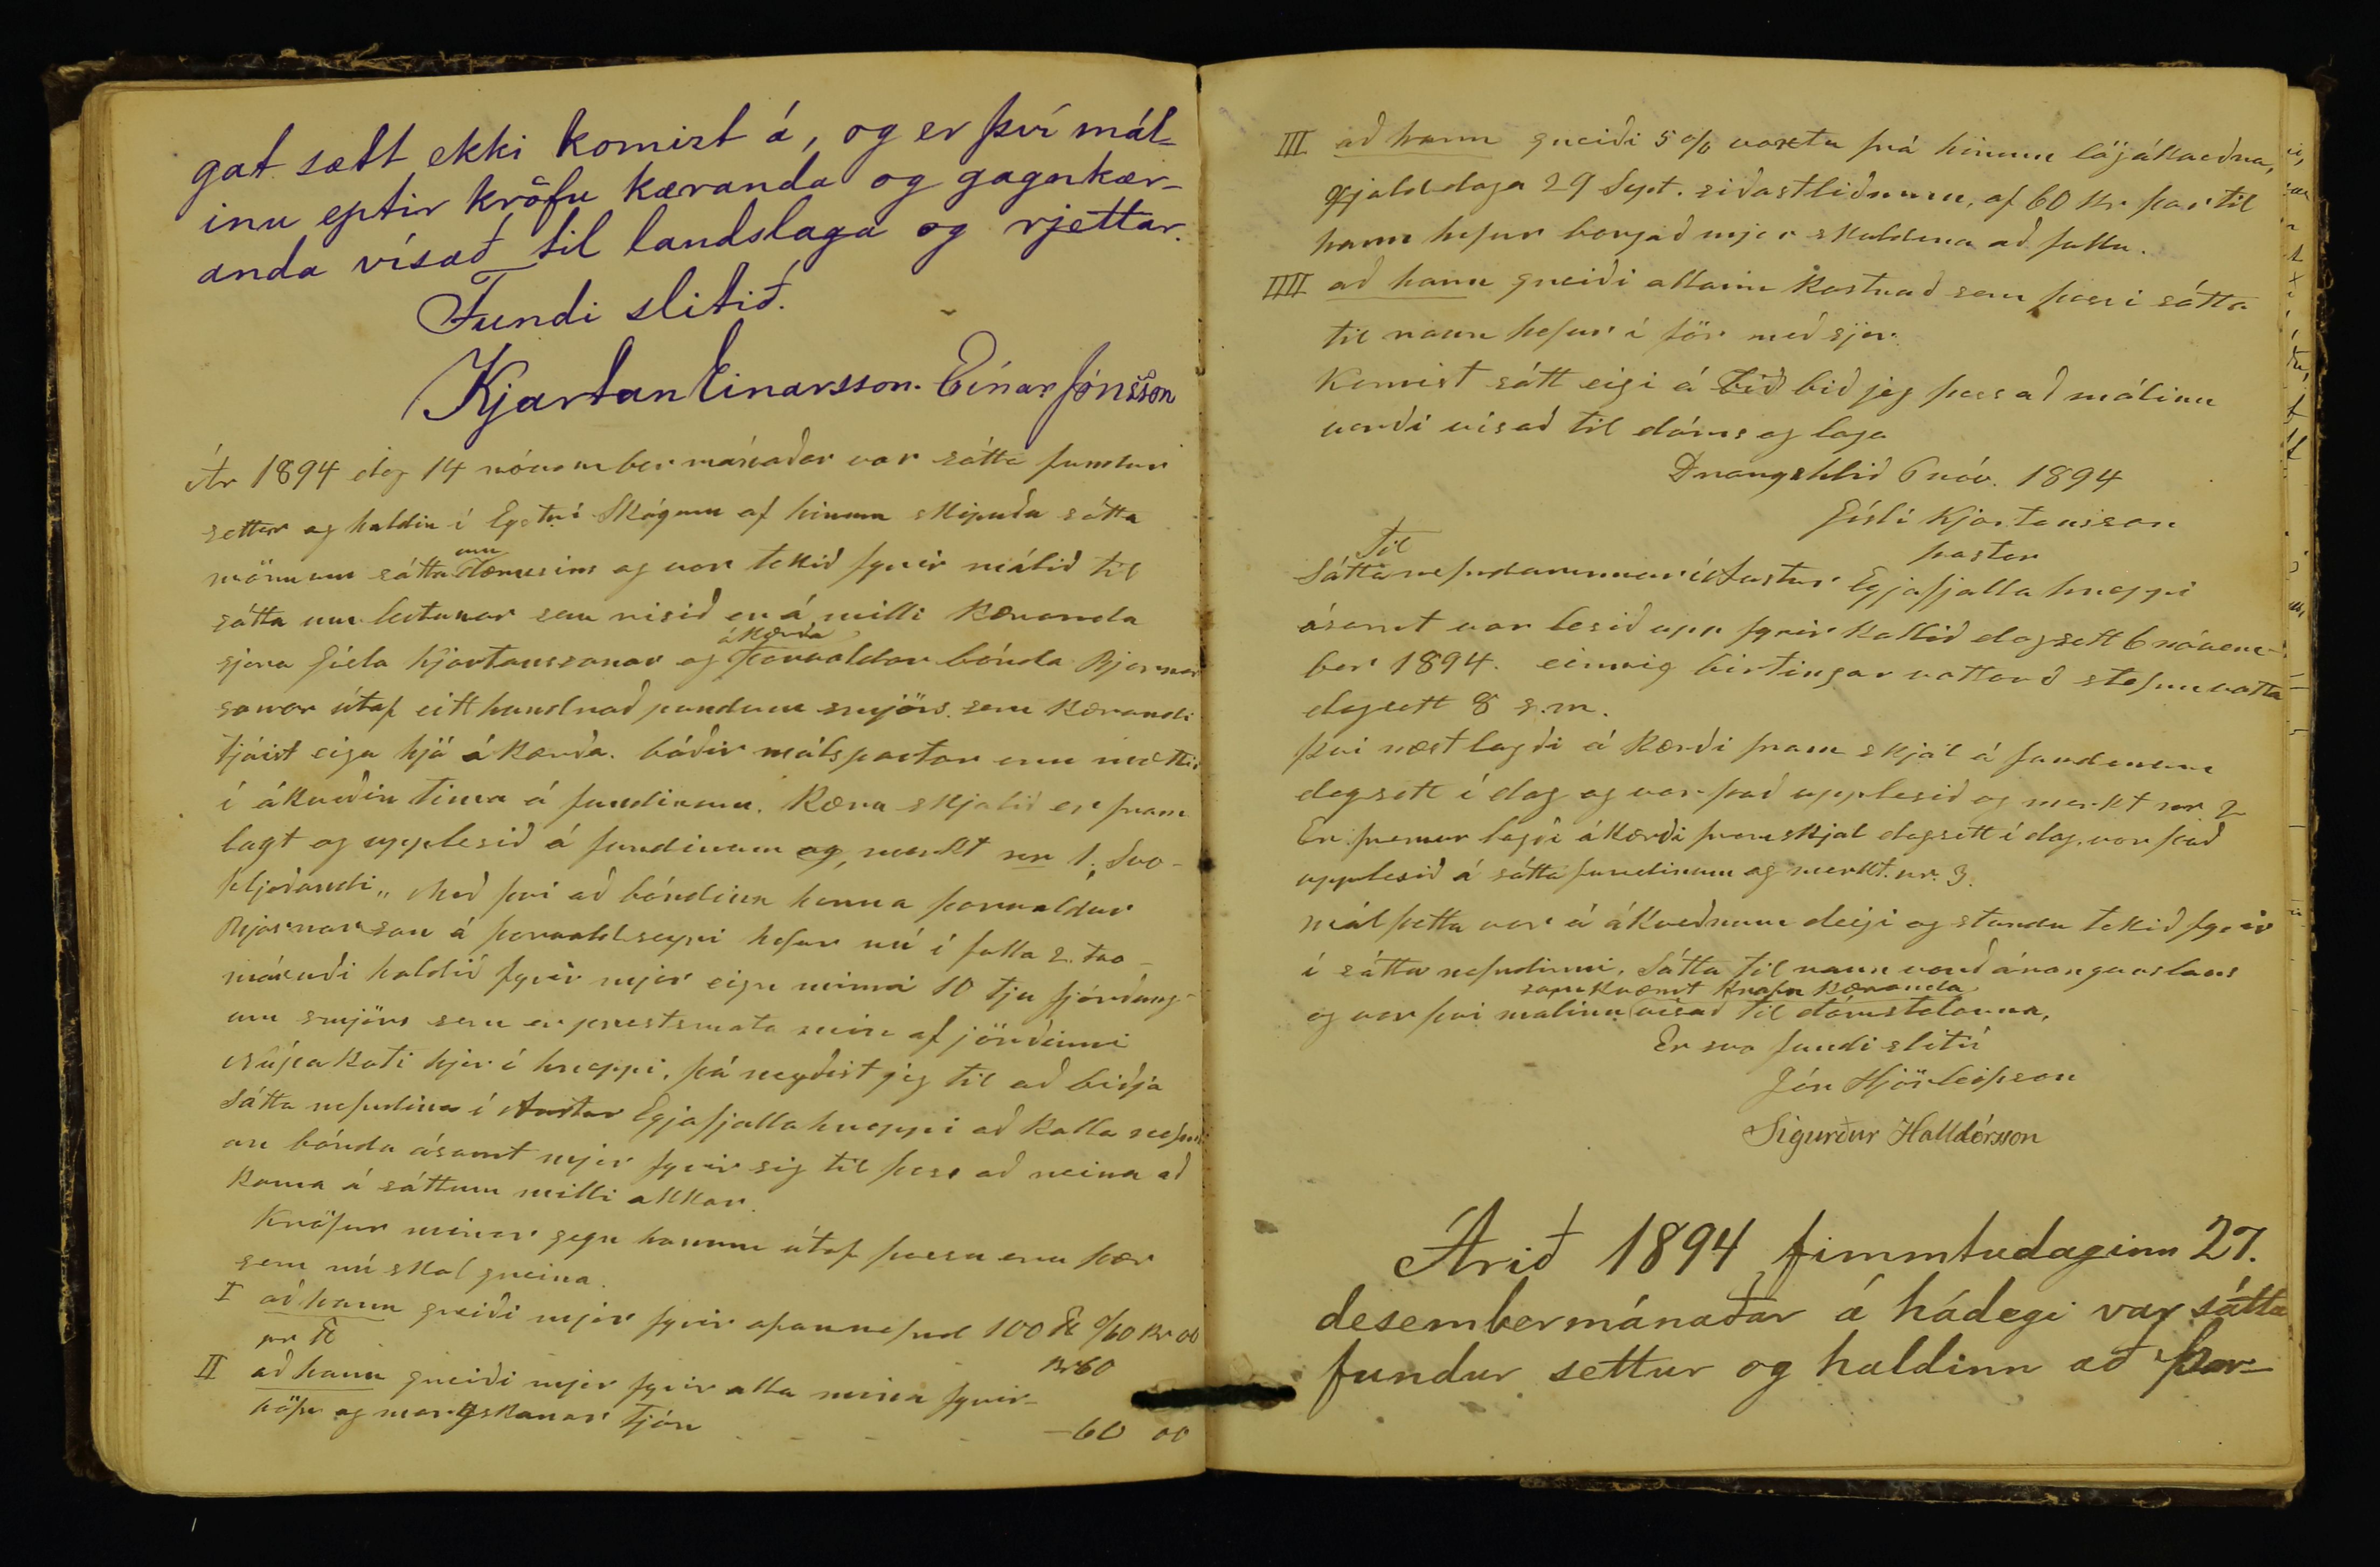 gat sætt ekki komizt á, og er því mál-
inu eptir kröfu kæranda og gagnkær-
anda vísað til landslaga og rjettar.
Fundi slitið.
Kjartan Einarsson. Einar Jónsson
Ár 1894 dag 14 nóvember mánaðar var sátta fundur
settur og haldin í Eystri Skógum af hinum skipuðu sátta
mönnum sátta umdæmisins og var tekið fyrir málið til
sátta um. sem risið er á milli kæranda
sjera Gísla Kjartanssonar og ákærða Þorvaldar bónda Bjarnar
sonar útaf eitt hundrað pundum smjörs. sem kærandi
tjáist eiga hjá ákærða. báðir málspartar eru mættir
í ákveðin tíma á fundinum. Kæru skjalið er fram
lagt og upplesið á fundinum og, merkt nr 1. Svo-
hljóðandi„ Með því að bóndinn herra Þorvaldur
Bjarnarson á Þorvaldseyri hefur nú í fulla 2. tvo-
mánuði haldið fyrir mjer eign minni 10 tju fjórðung-
um smjörs sem er prestsmata mín af jörðinni
Núpakoti hjer í hreppi, þá neyðist jeg til að biðja
Sátta nefndina í Austur Eyjafjallahreppi að kalla nefnd
an bónda ásamt mjer fyrir sig til þess að reina að
koma á sáttum milli okkar.
Kröfur mínar gegn honum útaf þessu eru þær
sem nú skal greina.
I að hann greiði mjer fyrir ofannefnd 100 ℔ 0/60 Kr 00
pr ℔ Kr 60
II að hann greiði mjer fyrir alla mína fyrir-
höfn og tjón - - - - - 60 00
III að hann greiði 5 % vaxtu frá hinum lögákveðna,
gjalddaga 29 Sept. síðastliðnum, af 60 Kr þar til
hann hefur borgað mjer skuldina að fullu.
IIII að hann greiði allann kostnað sem þessi sátta
til raun hefur í för með sjer.
Komist sátt eigi á bið bið jeg þess að málinu
verði vísað til dóms og laga
Drangshlíð 6 nóv. 1894
Gísli Kjartansson
prestur
Til
Sáttanefndarinnar í Austur Eyjafjalla hreppi
ásamt var lesið upp fyrirkallið dagsett 6 nóvem-
ber 1894. einnig birtingar vottorð stefnuvotta
dagsett 8 s.m.
Því næst lagði ákærði fram skjal á fundinum
dagsett í dag og var það upplesið og merkt nr. 2
En fremur lagði ákærði fram skjal dagsett í dag. var það
upplesið á sátta fundinum og merkt. nr. 3.
Mál þetta var á ákveðnum deigi og stundu tekið fyrir
í sátta nefndinni, Sátta til raun varð árangurslaus
og var því malinu samkvæmt krafu kæranda vísað til dómstolanna,
Er svo fundi slitið
Jón Hjörleifsson
Sigurður Halldórsson
Árið 1894 fimmtudaginn 27.
desembermánaðar á hádegi var sátta
fundur settur og haldinn að Þor-